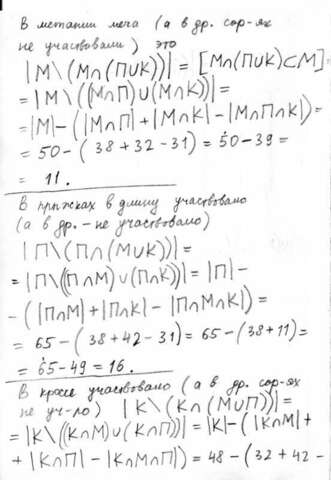 В метании мяча (а в др. сор-ях
не участвовали) это
|M\(M∩(П∪K))| = [M∩(П∪K)⊂M] =
= |M\((M∩П)∪(M∩K))| =
= |M| - (|M∩П| + |M∩K| - |M∩П∩K|) =
= 50 - (38 + 32 - 31) = 50 - 39 =
= 11.
В прыжках в длину участвовало
(а в др. - не участвовало)
|П\(П∩(M∪K))| =
= |П\((П∩M)∪(П∩K))| = |П| -
- (|П∩M| + |П∩K| - |П∩M∩K|) =
= 65 - (38 + 42 - 31) = 65 - (38 + 11) =
= 65 - 49 = 16.
В кроссе участвовало (а в др. сор-ях
не уч-ло) |K\(K∩(M∪П))| =
= |K\((K∩M)∪(K∩П))| = |K| - (|K∩M| +
+ |K∩П| - |K∩M∩П|) = 48 - (32 + 42 -